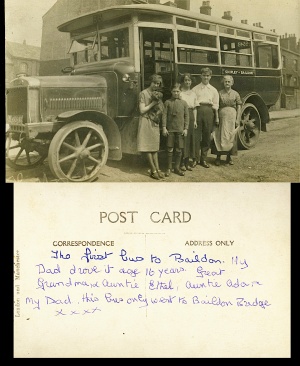 POST CARD
CORRESPONDENCE
ADDRESS ONLY
The first bus to Baildon. My
Dad drove it age 16 years. Great
Grandma & Auntie Ethel, Auntie Ada &
my Dad. this bus only went to Baildon Bridge
x x x x
London and Manchester